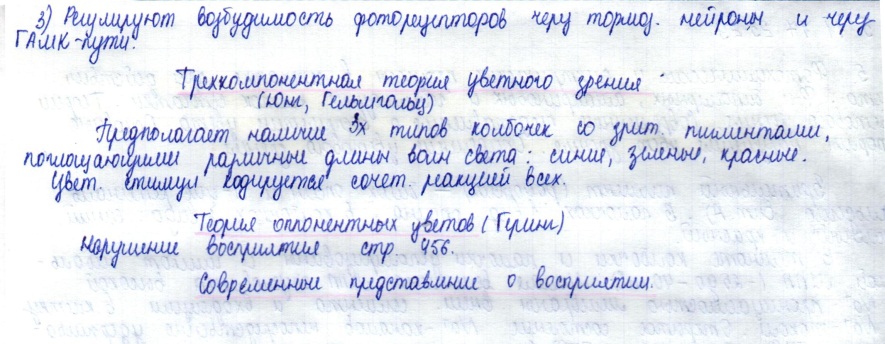 3) Регулируют возбудимость фоторецепторов через тормоз. нейроны и через
ГАМК-пути.
Трехкомпонентная теория цветного зрения
(Юнг, Гельмгольц)
Предполагает наличие 3х типов колбочек со зрит. пигментами,
поглощающими различные длины волн света: синие, зеленые, красные.
Цвет. стимул кодируется сочет. реакцией всех.
Теория оппонентных цветов (Геринг)
Нарушение восприятия стр 456.
Современное представление о восприятии.